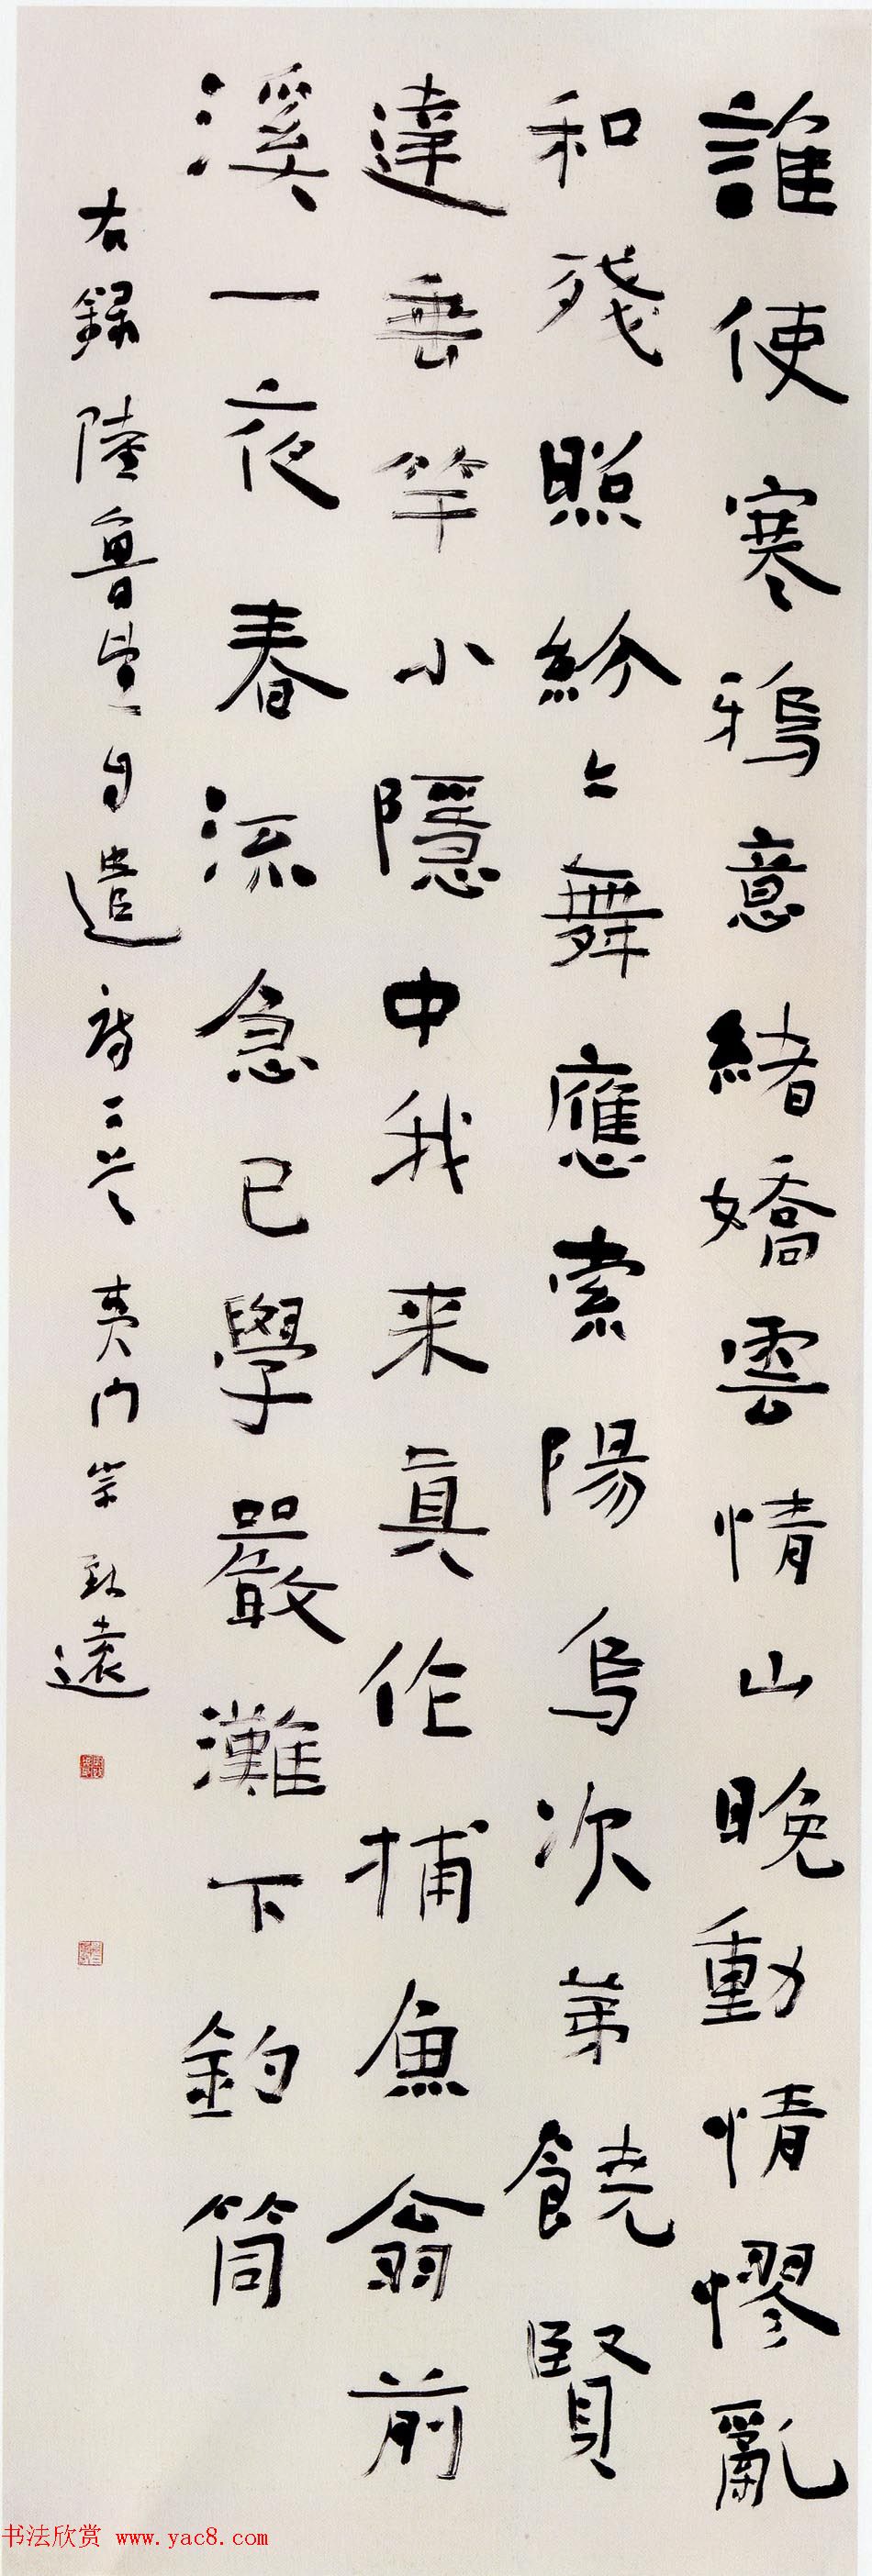 誰使寒鴉意緒嬌雲情山晚動情憀亂
和殘照紛〻舞應索陽烏次第饒賢
達垂竿小隱中我来真作捕魚翁前
溪一夜春流急已學嚴灘下釣筒
右錄陸魯望自遣詩二首 夷門宗致遠
书法欣赏 www.yac8.com